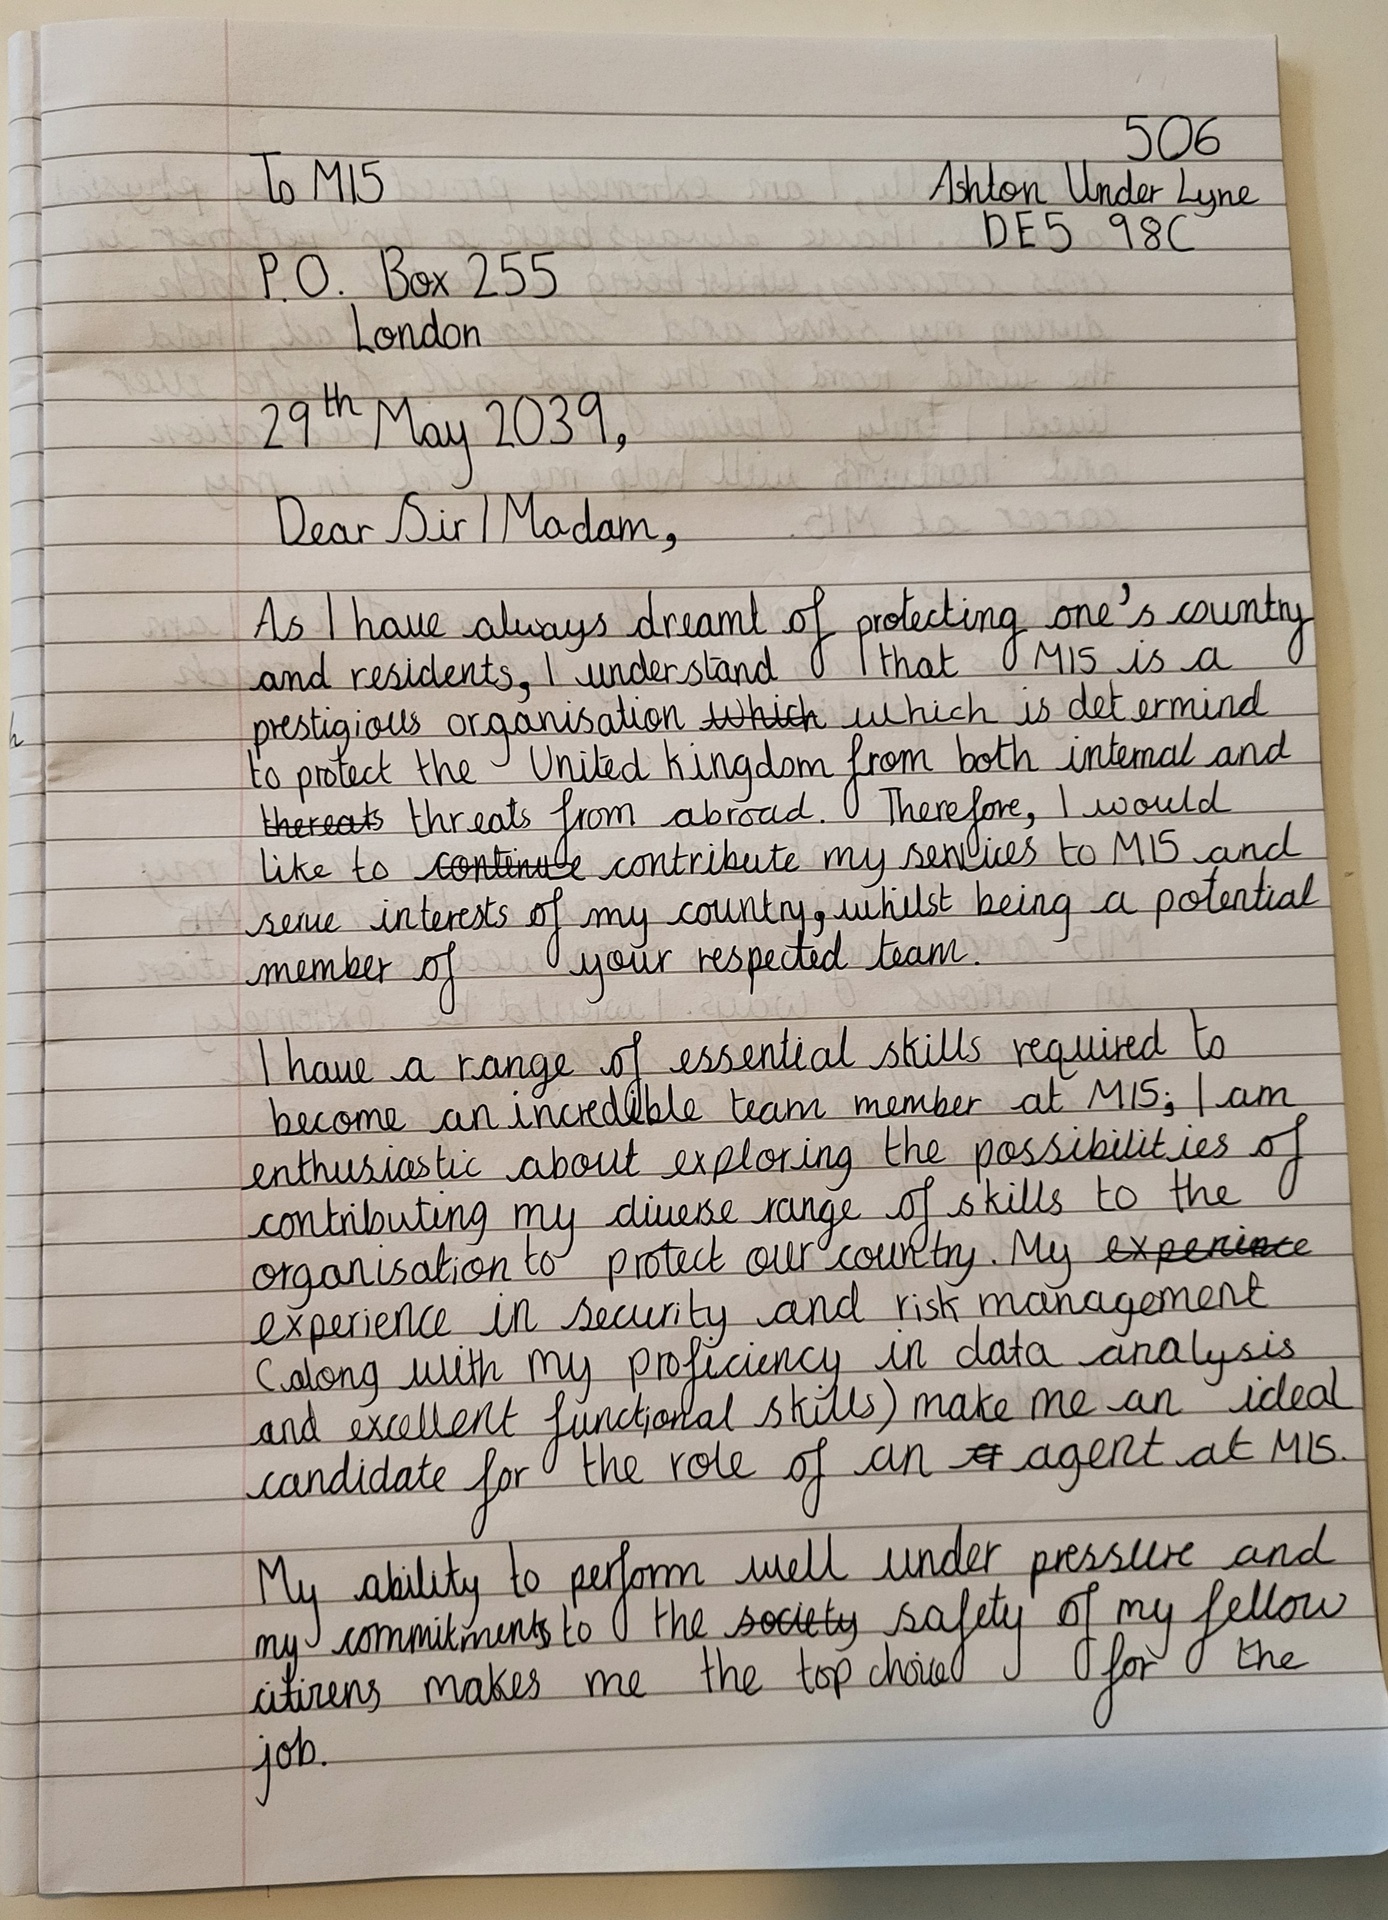 506
To MI5
Ashton Under Lyne
DE5 98C
P.O. Box 255
London
29th May 2039,
Dear Sir/Madam,
As I have always dreamt of protecting one's country
and residents, I understand that MI5 is a
prestigious organisation which which is determind
to protect the United Kingdom from both internal and
thereats threats from abroad. Therefore, I would
like to continue contribute my services to MI5 and
serve interests of my country, whilst being a potential
member of your respected team.
I have a range of essential skills required to
become an incredible team member at MI5; I am
enthusiastic about exploring the possibilities of
contributing my diverse range of skills to the
organisation to protect our country. My experince
experience in security and risk management
(along with my proficiency in data analysis
and excellent functional skills) make me an ideal
candidate for the role of an agent at MI5.
My ability to perform well under pressure and
my commitments to the society safety of my fellow
citizens makes me the top choice for the
job.